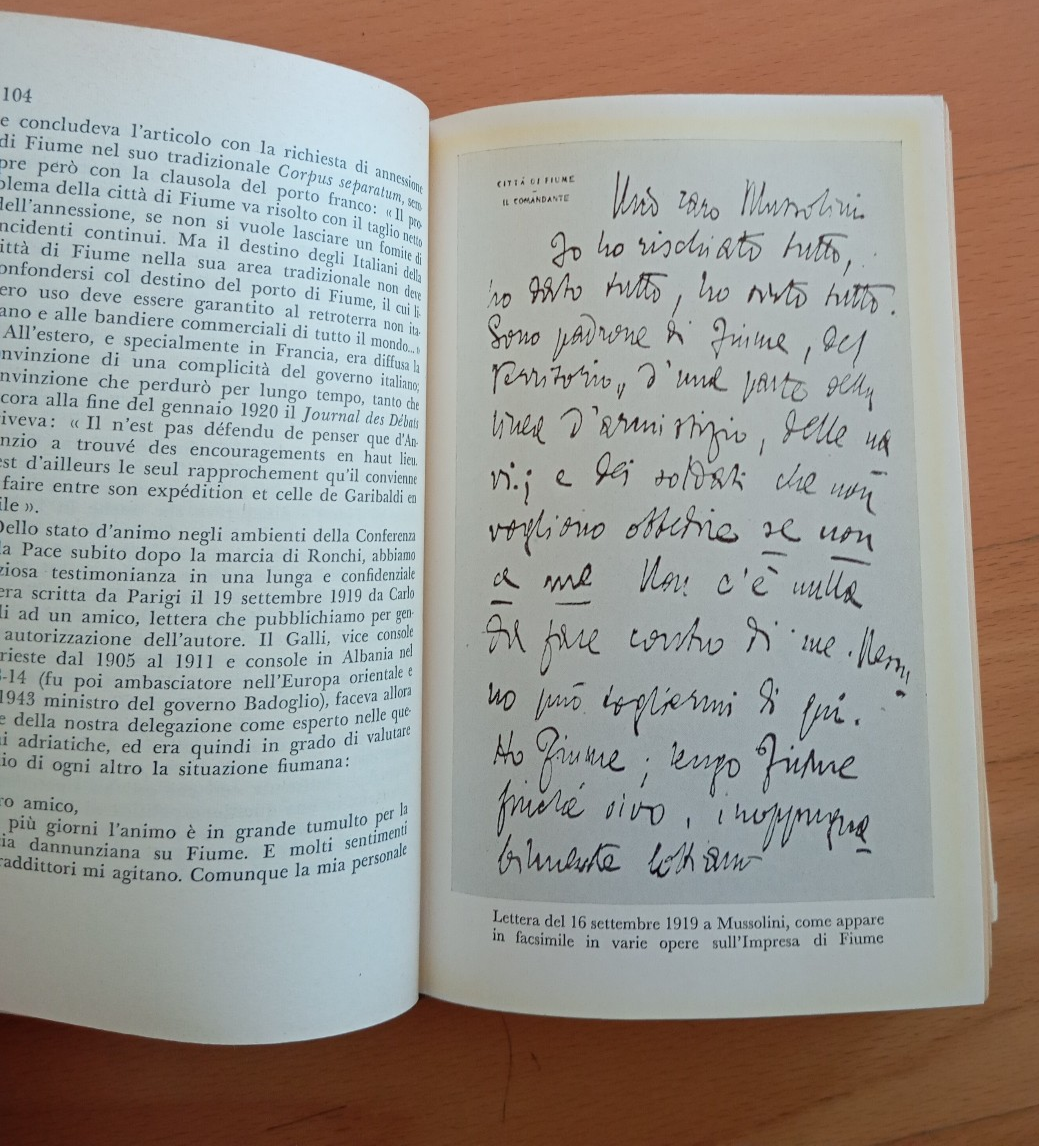 104
e concludeva l'articolo con la richiesta di annessione
di Fiume nel suo tradizionale Corpus separatum, sem-
pre però con la clausola del porto franco: « Il pro-
blema della città di Fiume va risolto con il taglio netto
dell'annessione, se non si vuole lasciare un fomite di
incidenti continui. Ma il destino degli Italiani della
ittà di Fiume nella sua area tradizionale non deve
onfondersi col destino del porto di Fiume, il cui li-
ero uso deve essere garantito al retroterra non ita-
ano e alle bandiere commerciali di tutto il mondo... »
All'estero, e specialmente in Francia, era diffusa la
nvinzione di una complicità del governo italiano;
nvinzione che perdurò per lungo tempo, tanto che
cora alla fine del gennaio 1920 il Journal des Débats
iveva: « Il n'est pas défendu de penser que d'An-
nzio a trouvé des encouragements en haut lieu.
est d'ailleurs le seul rapprochement qu'il convienne
faire entre son expédition et celle de Garibaldi en
ile ».
Dello stato d'animo negli ambienti della Conferenza
la Pace subito dopo la marcia di Ronchi, abbiamo
ziosa testimonianza in una lunga e confidenziale
era scritta da Parigi il 19 settembre 1919 da Carlo
li ad un amico, lettera che pubblichiamo per gen-
autorizzazione dell'autore. Il Galli, vice console
rieste dal 1905 al 1911 e console in Albania nel
-14 (fu poi ambasciatore nell'Europa orientale e
1943 ministro del governo Badoglio), faceva allora
e della nostra delegazione come esperto nelle que-
ni adriatiche, ed era quindi in grado di valutare
io di ogni altro la situazione fiumana:
ro amico,
più giorni l'animo è in grande tumulto per la
ia dannunziana su Fiume. E molti sentimenti
raddittori mi agitano. Comunque la mia personale
CITTÀ DI FIUME
IL COMANDANTE
Mio caro Mussolini
Io ho rischiato tutto,
ho dato tutto, ho avuto tutto.
Sono padrone di Fiume, del
territorio, d'una parte della
linea d'armistizio, delle na
vi; e dei soldati che non
vogliono obbedire se non
a me Non c'è nulla
da fare contro di me. Nessu
no può togliermi di qui.
Ho Fiume; tengo Fiume
finché vivo, inoppugna
bilmente
Lettera del 16 settembre 1919 a Mussolini, come appare
in facsimile in varie opere sull'Impresa di Fiume